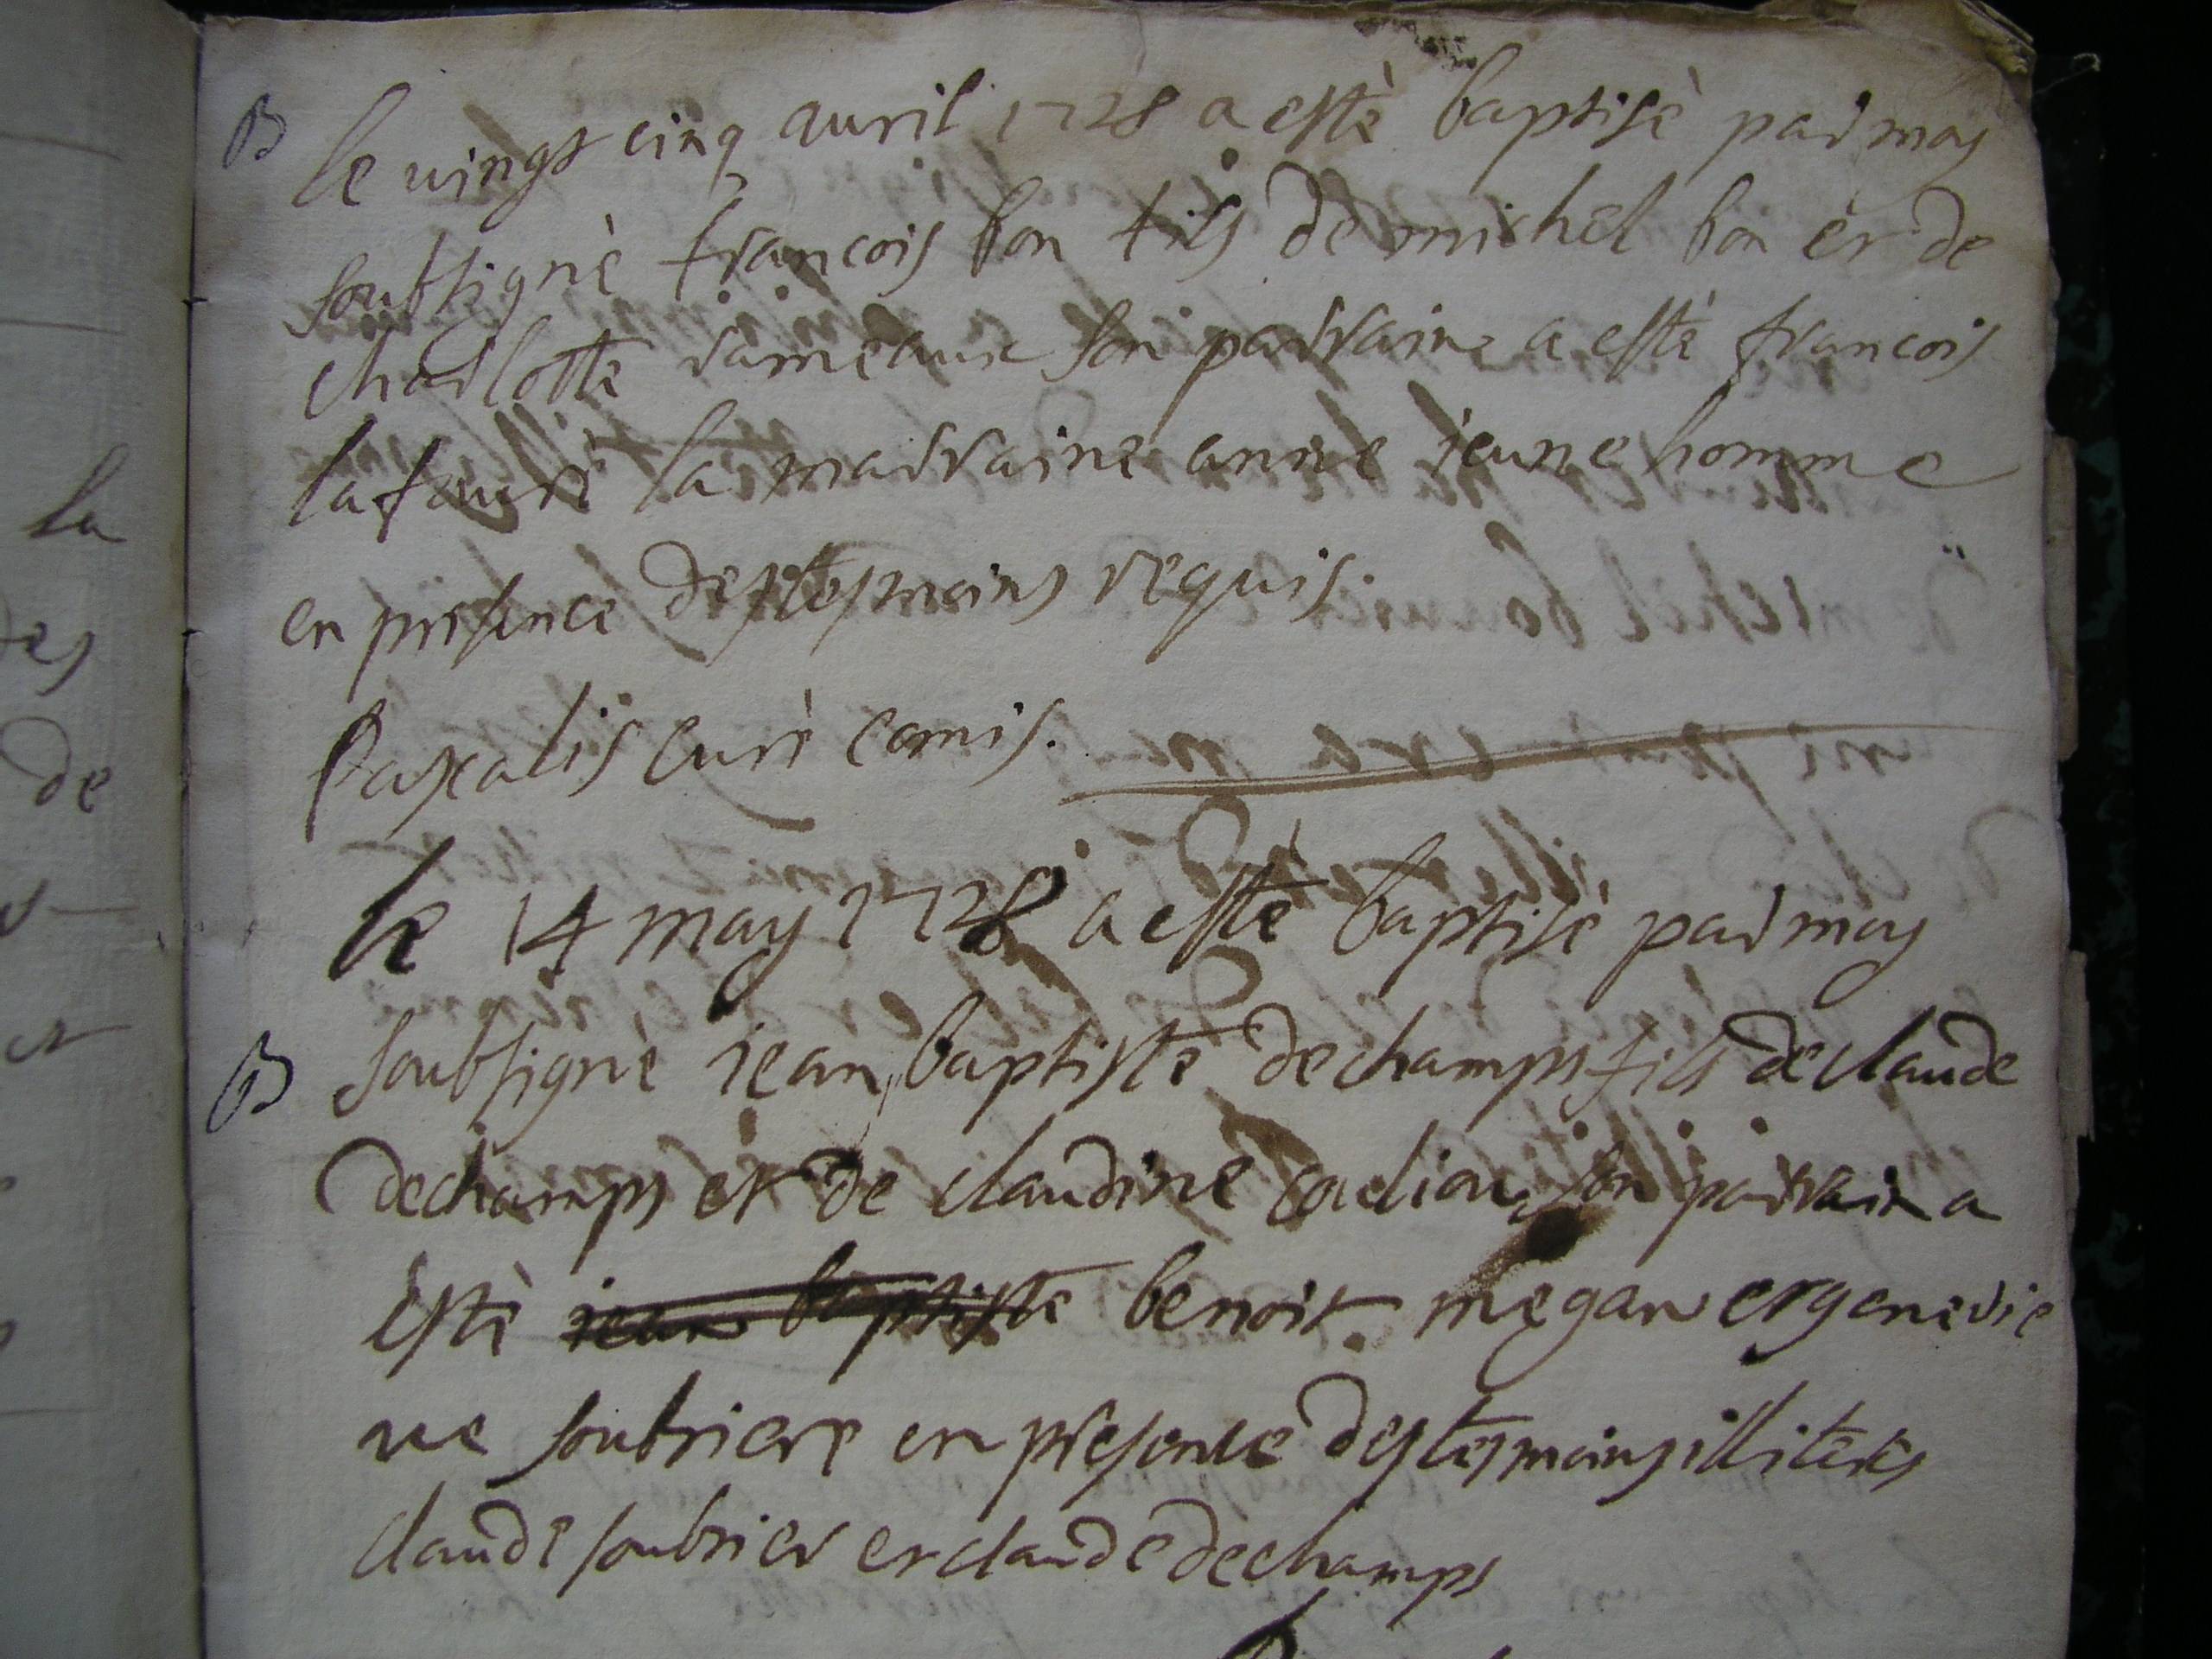 B
le vingt cinq auril 1728 a estè baptisè par moy
soubsignè francois bon fils de michel bon et de
charlotte rameaux son parrain a estè francois
la faure la marraine anne jeune homme
en presence des tesmoins requis.
Pascalis curè comis.
le 14 may 1728 a estè baptisè par moy
B
soubsignè jean baptiste dechamps fils de claude
dechamps et de claudine son parrain a
estè jean baptiste benoit megan et genevie
ve soubriere en presence des tesmoins illiterès
claude soubrier et claude dechamps
la
tes
de
et